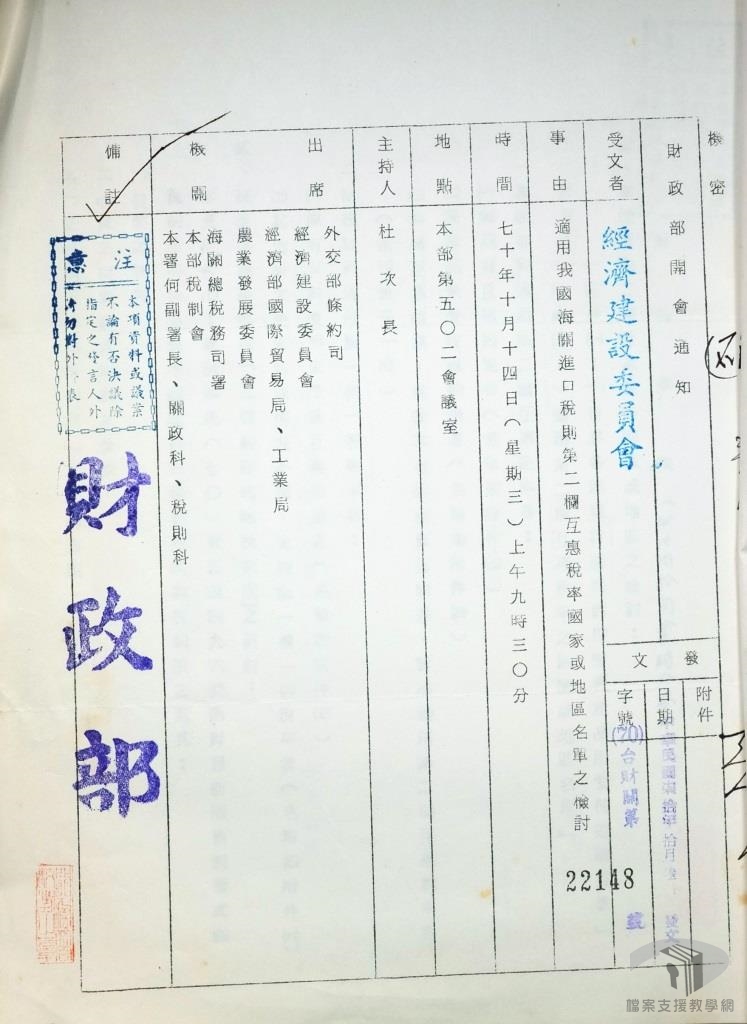 機密
財政部開會通知
發文
附件
日期
中華民國柒拾年拾月
發文
字號
(70)台財關第
22148
號
受文者
經濟建設委員會
事由
適用我國海關進口稅則第二欄互惠稅率國家或地區名單之檢討
時間
七十年十月十四日(星期三)上午九時三〇分
地點
本部第五〇二會議室
主持人
杜次長
出席機關
外交部條約司
經濟建設委員會
經濟部國際貿易局、工業局
農業發展委員會
海關總稅務司署
本部稅制會
本署何副署長、關政科、稅則科
備註
注意
本項資料或議案
不論有否決議除
指定之發言人外
請勿對外發表
財政部
檔案支援教學網